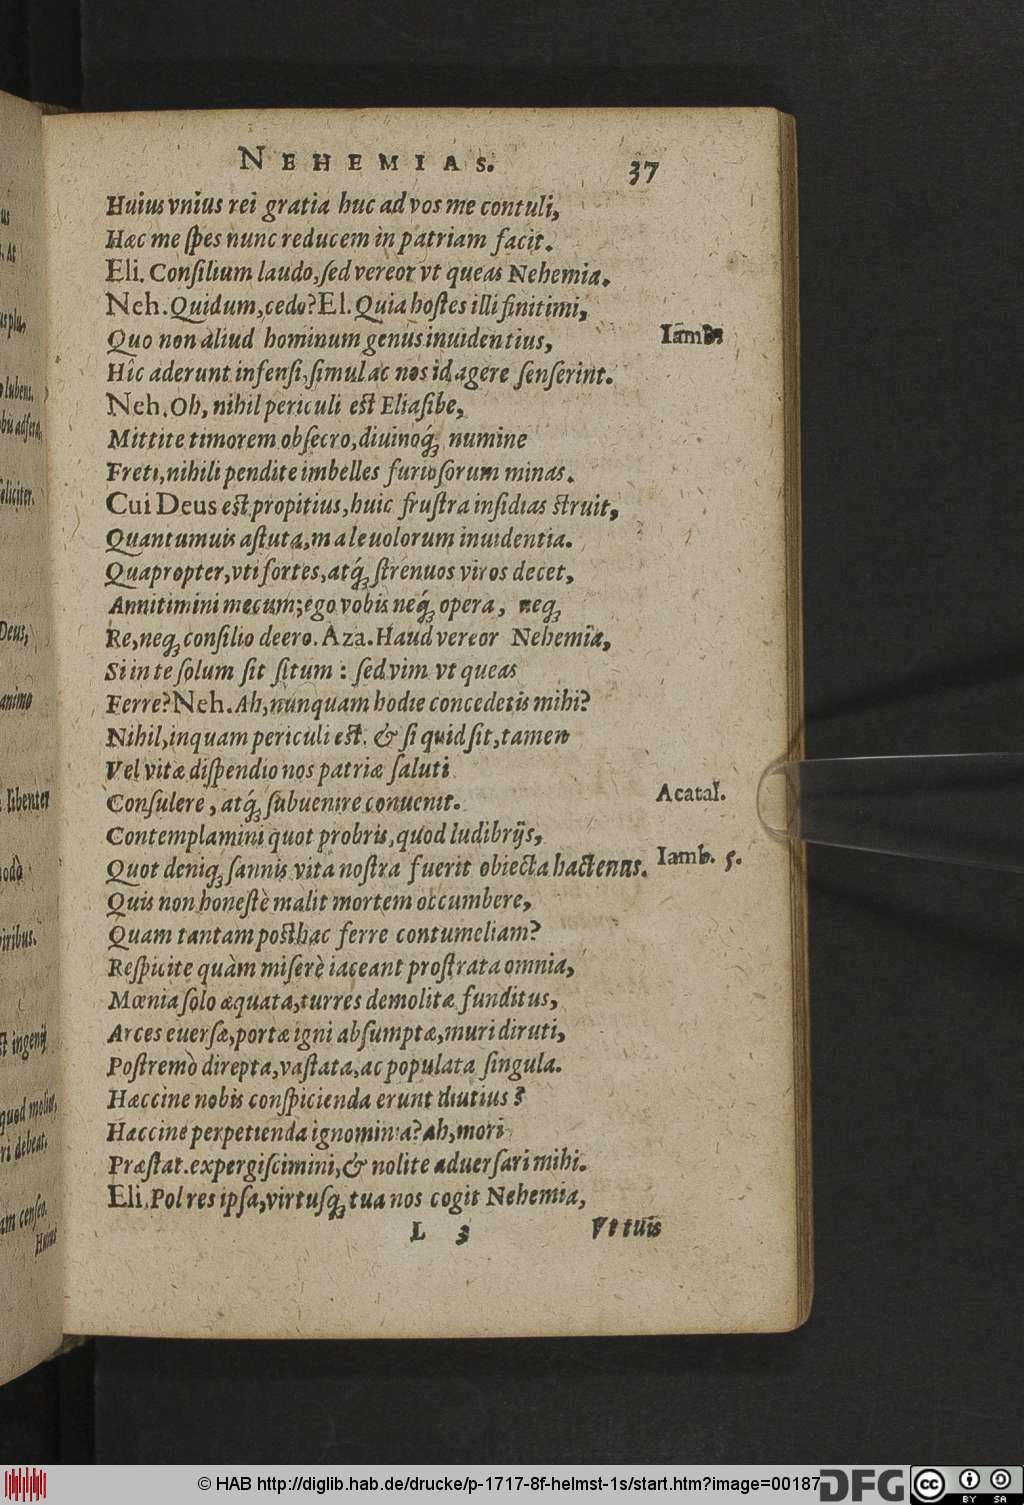 NEHEMIAS. 37
Huius vnius rei gratia huc ad vos me contuli,
Hæc me ſpes nunc reducem in patriam facit.
Eli. Conſilium laudo, ſed vereor vt queas Nehemia.
Neh. Quidum, cedo? El. Quia hoſtes illi finitimi,
Quo non aliud hominum genus inuidentius, Iamb.
Hîc aderunt infenſi, ſimul ac nos id agere ſenſerint.
Neh. Oh, nihil periculi eſt Eliaſibe,
Mittite timorem obſecro, diuinoq́ꝫ numine
Freti, nihili pendite imbelles furioſorum minas.
Cui Deus eſt propitius, huic fruſtra inſidias ſtruit,
Quantumuis aſtuta, maleuolorum inuidentia.
Quapropter, vti fortes, atq́ꝫ ſtrenuos viros decet,
Annitimini mecum; ego vobis neq́ꝫ opera, neqꝫ
Re, neqꝫ conſilio deero. Aza. Haud vereor Nehemia,
Si in te ſolum ſit ſitum: ſed vim vt queas
Ferre? Neh. Ah, nunquam hodie concedetis mihi?
Nihil, inquam periculi eſt. & ſi quid ſit, tamen
Vel vitæ diſpendio nos patriæ ſaluti
Conſulere, atq́ꝫ ſubuenire conuenit. Acatal.
Contemplamini quot probris, quod ludibrijs,
Quot deniqꝫ ſannis vita noſtra fuerit obiecta hactenus. Iamb. 5.
Quis non honeſtè malit mortem occumbere,
Quam tantam poſthac ferre contumeliam?
Reſpicite quàm miſerè iaceant proſtrata omnia,
Mœnia ſolo æquata, turres demolitæ funditus,
Arces euerſæ, portæ igni abſumptæ, muri diruti,
Poſtremò direpta, vaſtata, ac populata ſingula.
Hæccine nobis conſpicienda erunt diutius?
Hæccine perpetienda ignominia? ah, mori
Præſtat. expergiſcimini, & nolite aduerſari mihi.
Eli. Pol res ipſa, virtuſqꝫ tua nos cogit Nehemia,
L 3 Vt tuis
© HAB http://diglib.hab.de/drucke/p-1717-8f-helmst-1s/start.htm?image=00187
DFG
cc BY SA